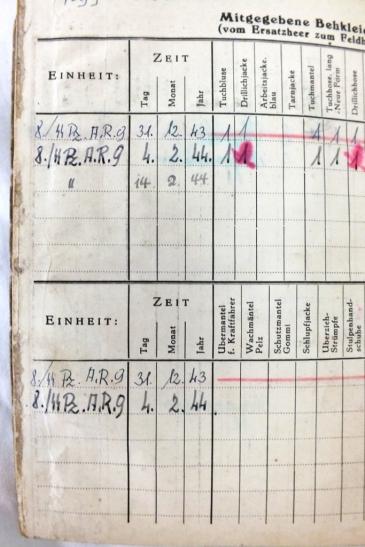 Mitgegebene Bekleid
(vom Ersatzheer zum Feldh
EINHEIT:
ZEIT
Tag
Monat
Jahr
Tuchbluse
Drillichjacke
Arbeitsjacke, blau
Tarnjacke
Tuchmantel
Tuchhose, lang
-Neue Form
Drillichhose
8./SS Pz. A.R.9 31. 12. 43 1 1 1 1 1
8./SS Pz. A.R.9 4. 2. 44. 1 1 1 1 1
" 14 2 44
EINHEIT:
ZEIT
Tag
Monat
Jahr
Übermantel f. Kraftfahrer
Wachmäntel Pelz
Schutzmantel Gommi
Schlupfjacke
Überzieh-Strümpfe
Stulpenhand-schuhe
8./SS Pz. A.R.9 31. 12. 43
8./SS Pz. A.R.9 4. 2. 44.